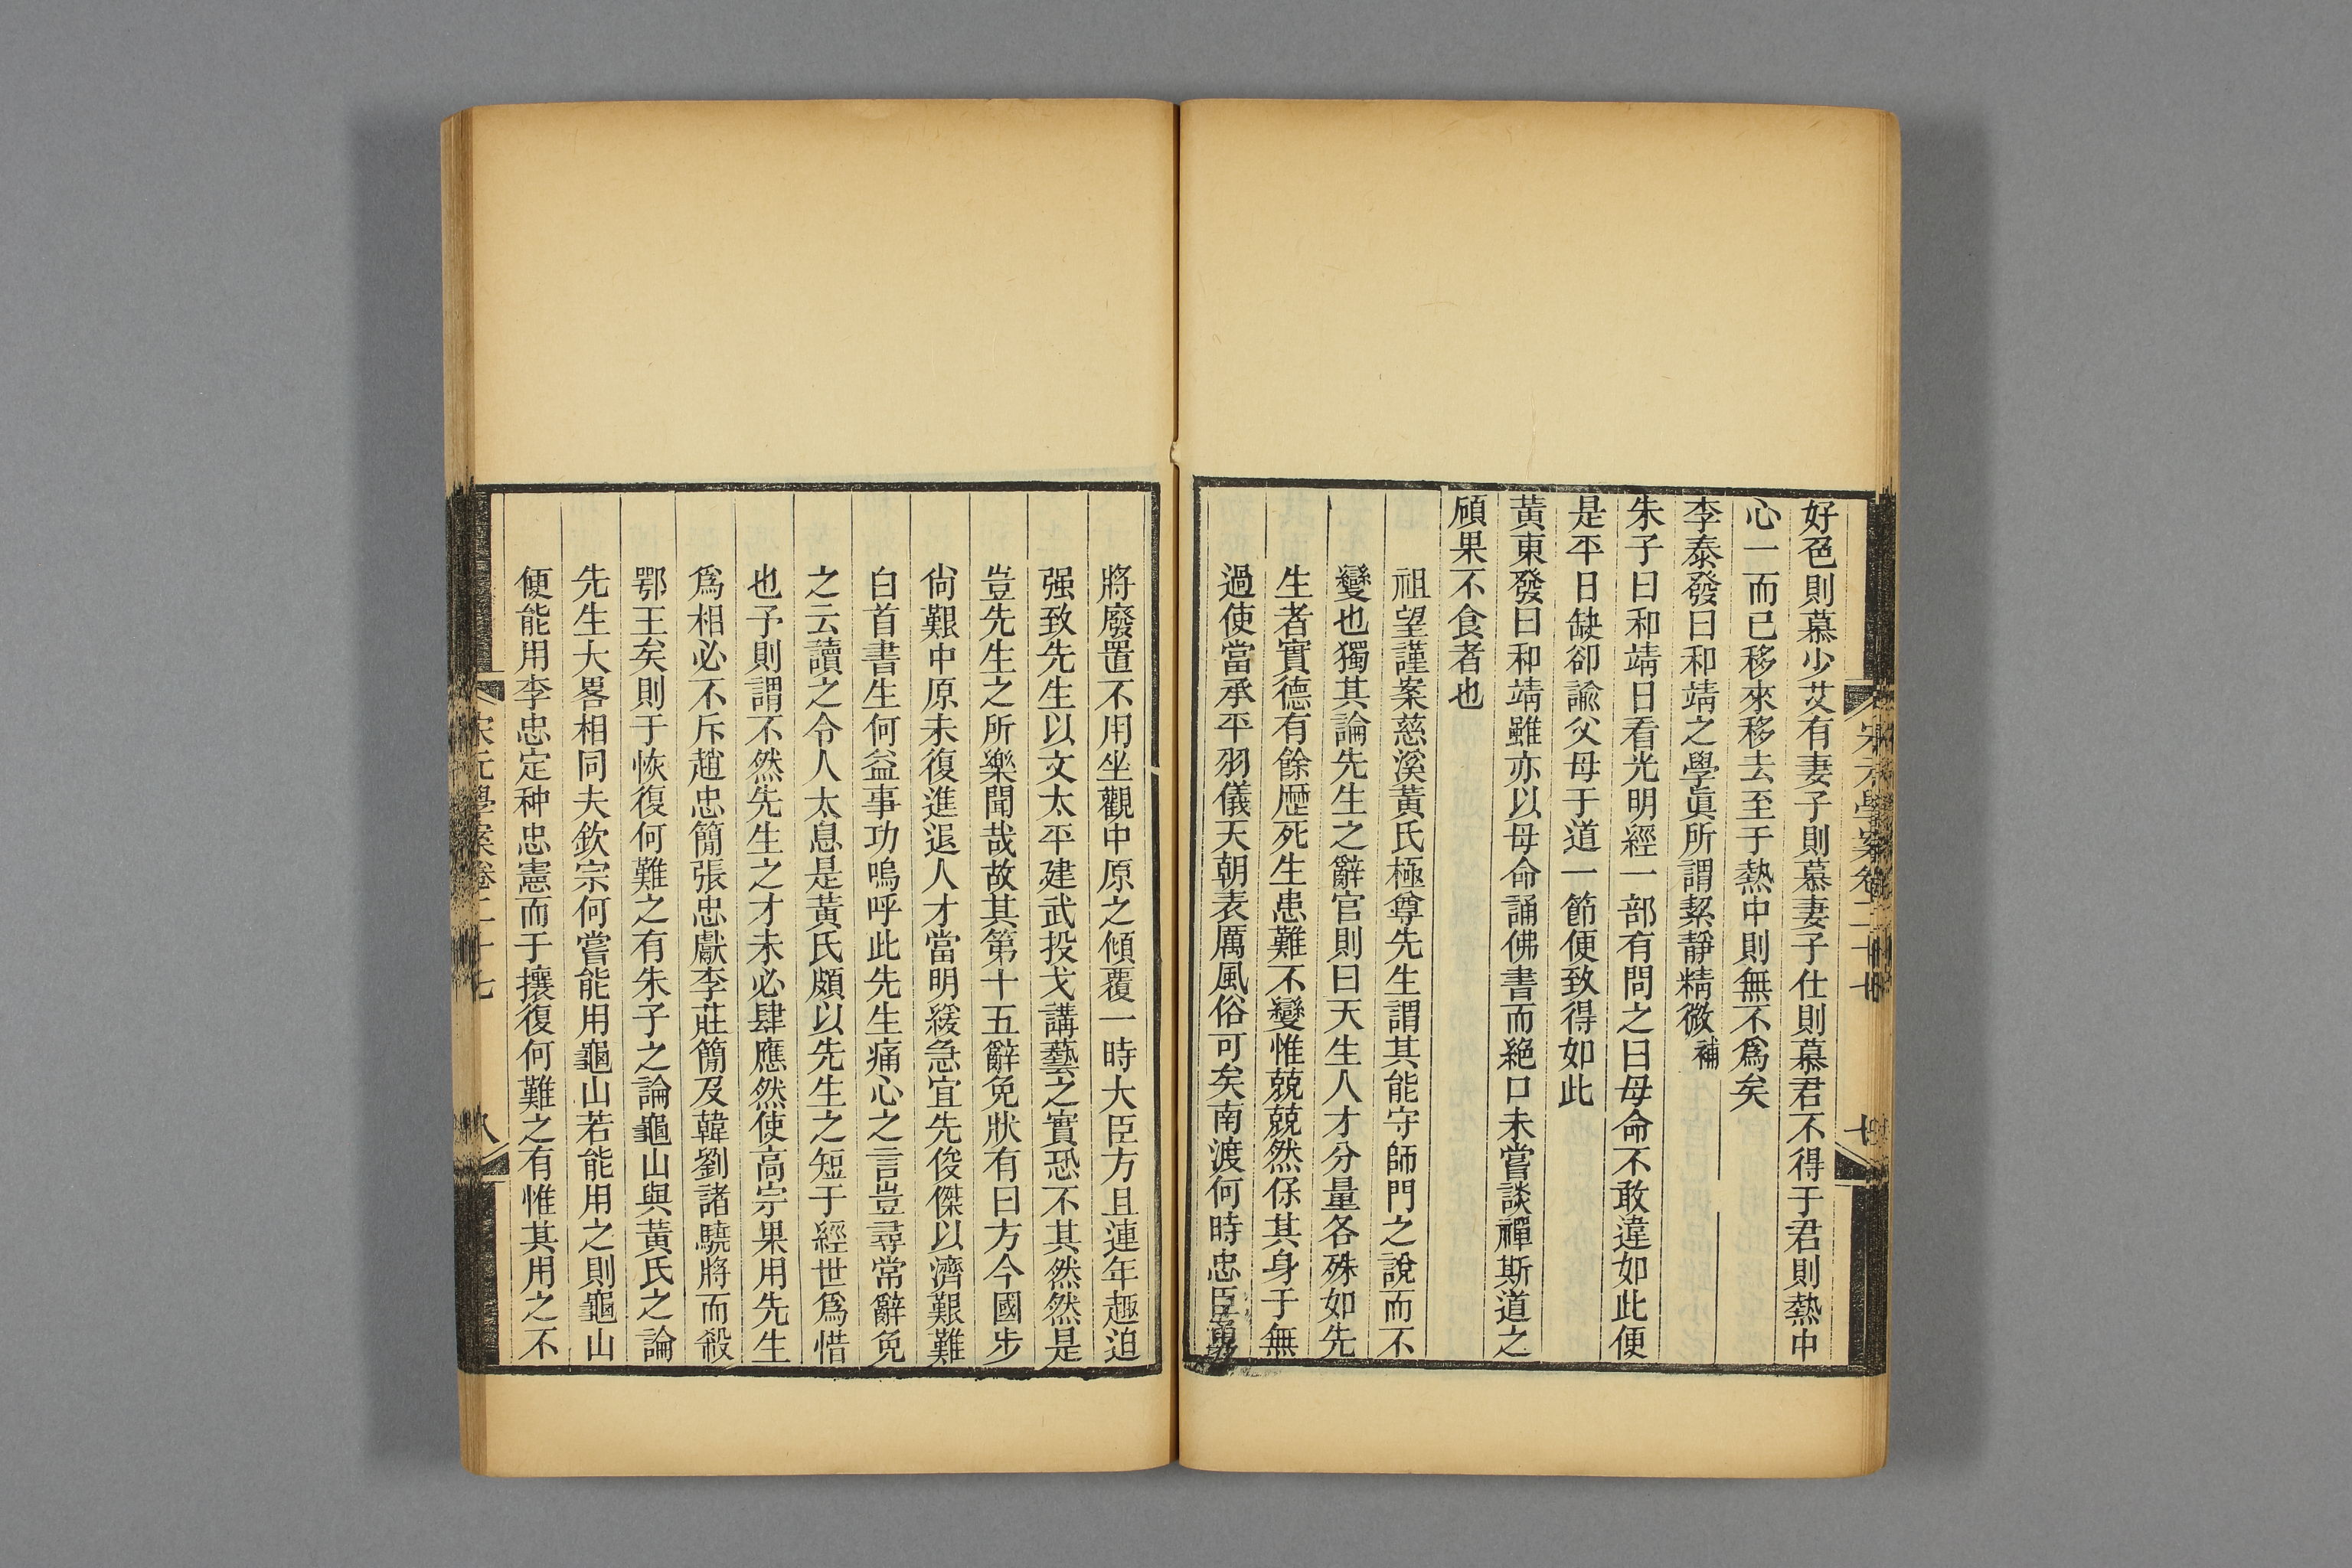 宋元學案卷二十七
好色則慕少艾有妻子則慕妻子仕則慕君不得于君則熱中
心一而已移來移去至于熱中則無不爲矣
李泰發曰和靖之學眞所謂絜靜精微補
朱子曰和靖日看光明經一部有問之曰母命不敢違如此便
是平日缺卻諭父母于道一節便致得如此
黃東發曰和靖雖亦以母命誦佛書而絕口未嘗談禪斯道之
頎果不食者也
祖望謹案慈溪黃氏極尊先生謂其能守師門之說而不
變也獨其論先生之辭官則曰天生人才分量各殊如先
生者實德有餘歷死生患難不變惟兢兢然保其身于無
過使當承平羽儀天朝表厲風俗可矣南渡何時忠臣勇
將廢置不用坐觀中原之傾覆一時大臣方且連年趣迫
强致先生以文太平建武投戈講藝之實恐不其然然是
豈先生之所樂聞哉故其第十五辭免狀有曰方今國步
尙艱中原未復進退人才當明緩急宜先俊傑以濟艱難
白首書生何益事功嗚呼此先生痛心之言豈尋常辭免
之云讀之令人太息是黃氏頗以先生之短于經世爲惜
也予則謂不然先生之才未必肆應然使高宗果用先生
爲相必不斥趙忠簡張忠獻李莊簡及韓劉諸驍將而殺
鄂王矣則于恢復何難之有朱子之論龜山與黃氏之論
先生大畧相同夫欽宗何嘗能用龜山若能用之則龜山
便能用李忠定种忠憲而于攘復何難之有惟其用之不
宋元學案卷二十七
八